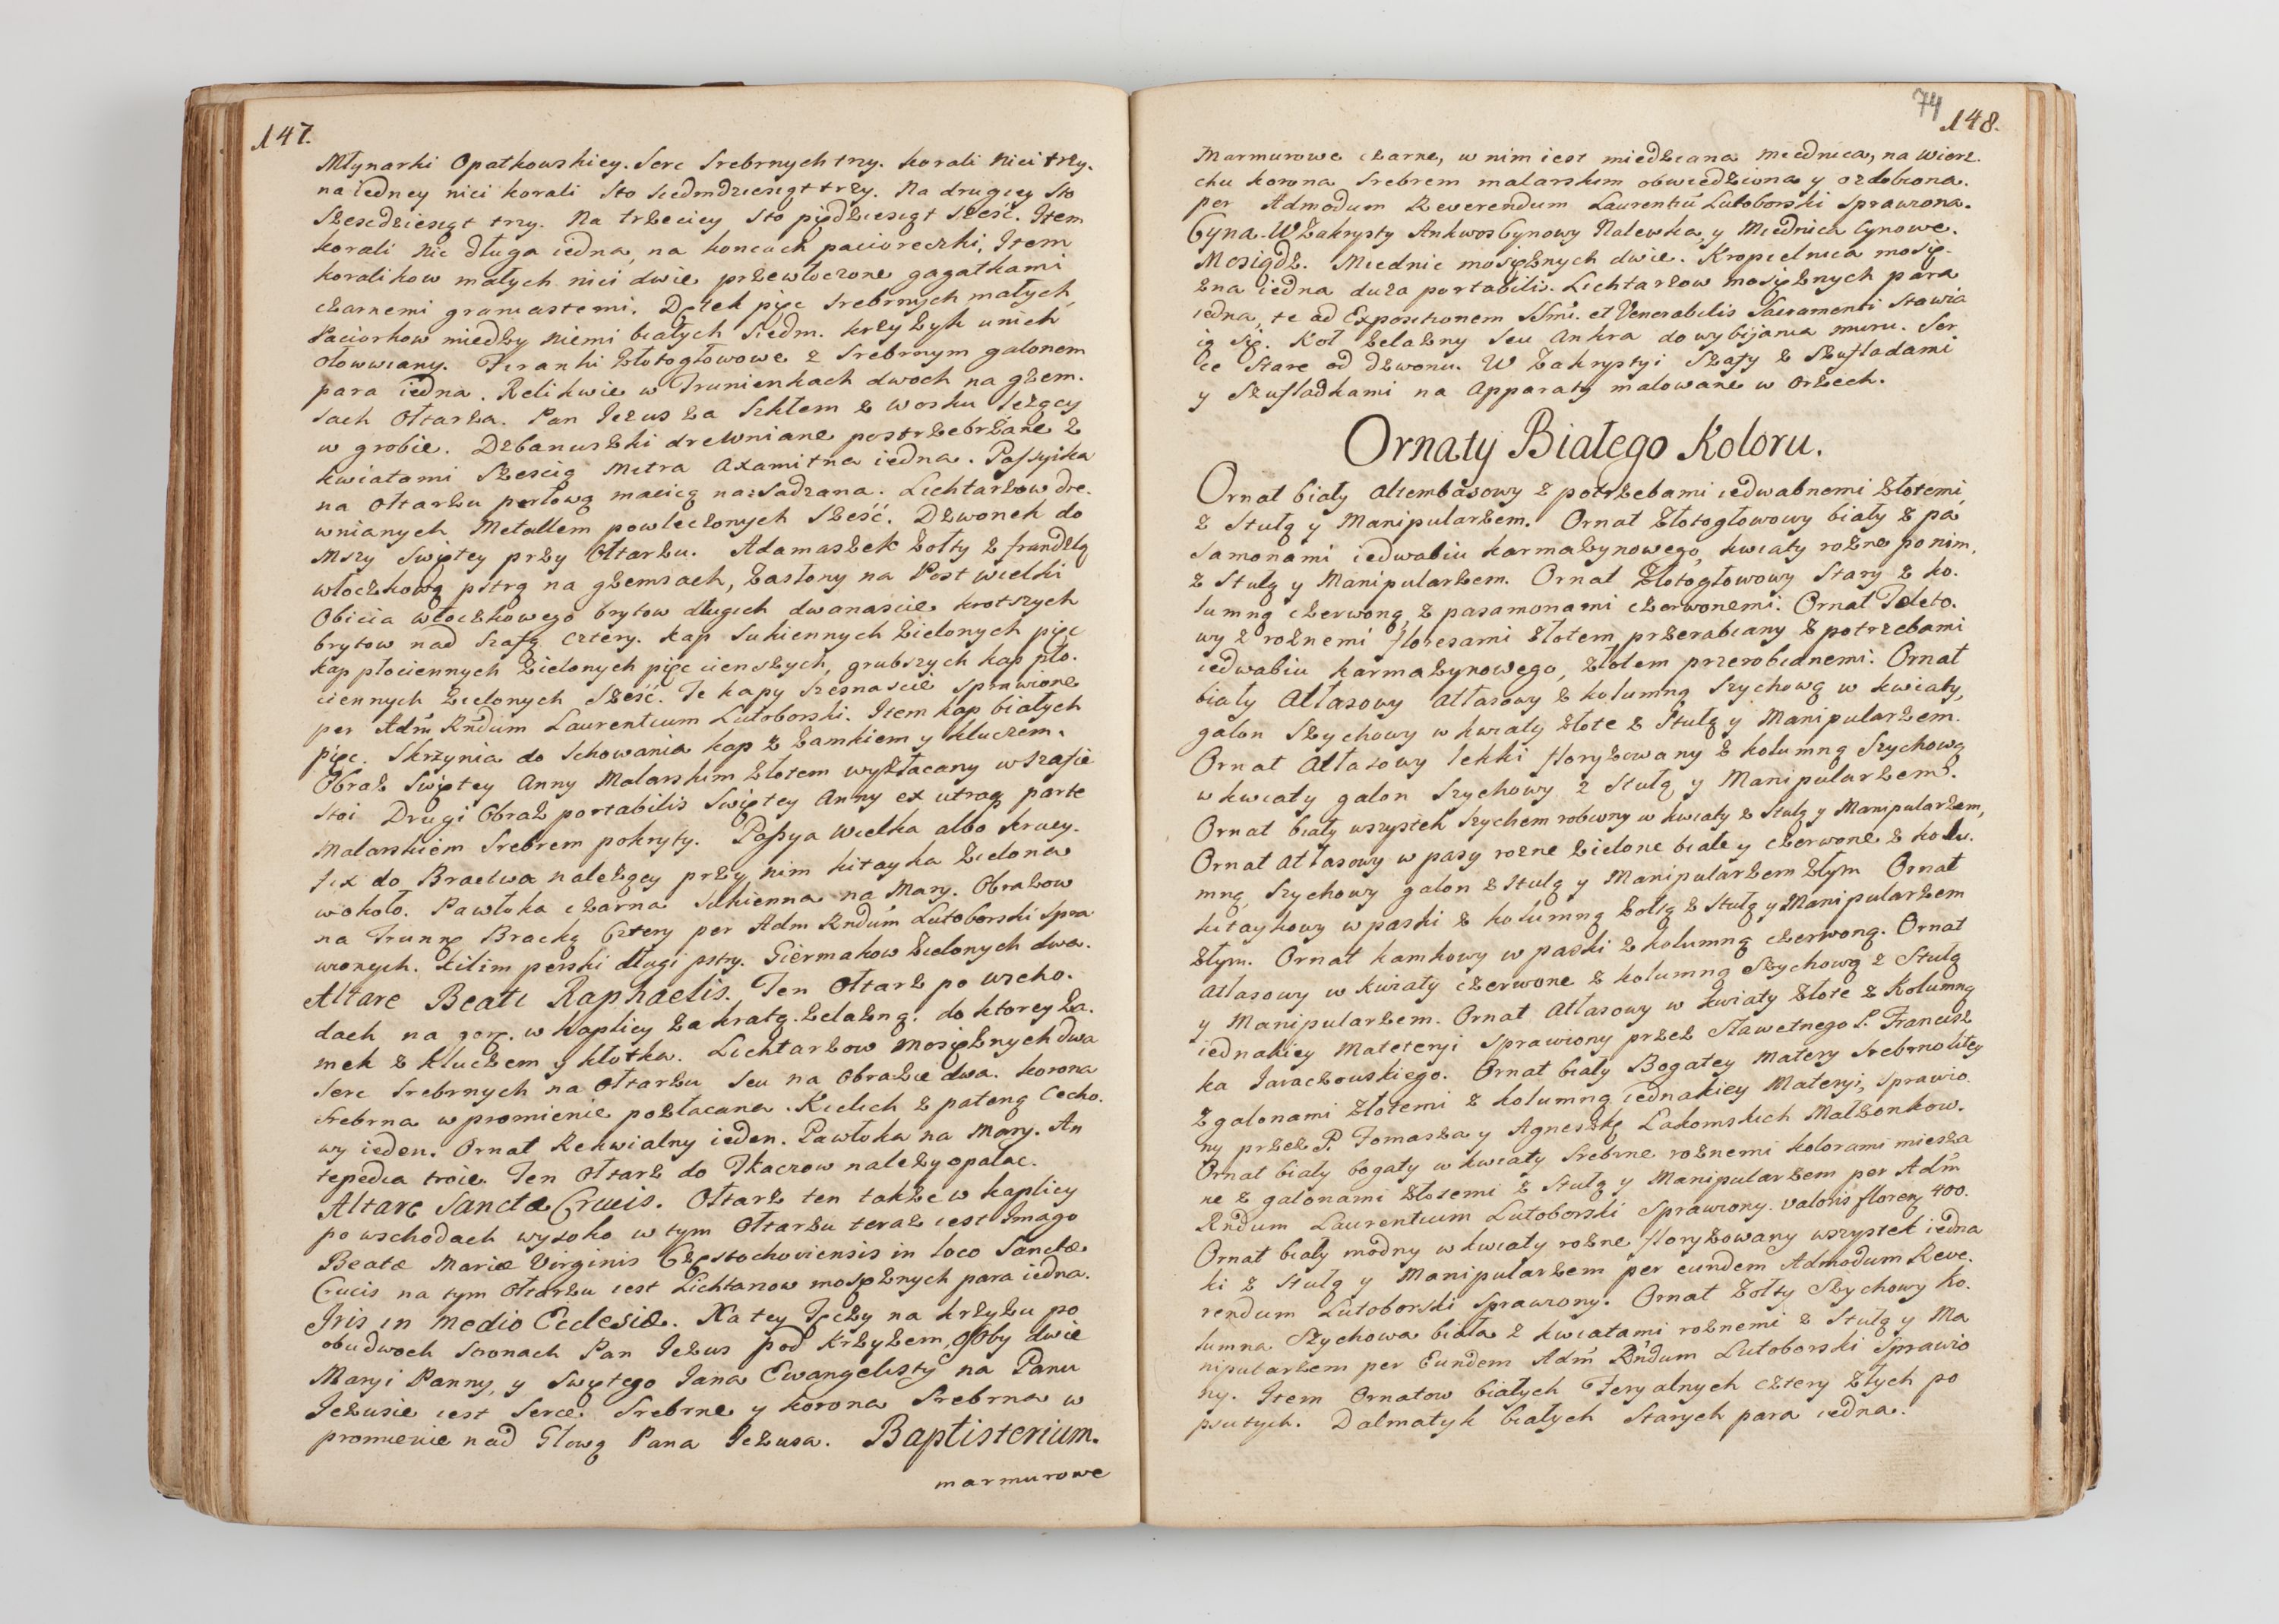 147.
Młynarki Opatkowskiey. Serc Srebrnych trzy. korali Nici trzy.
na iedney nici korali Sto Siedmdziesiąt trzy. Na drugiey Sto
Szescdziesiąt trzy. Na trzeciey Sto pięćdziesiąt Sześć. Item
korali Nic długa iedna, na koncach pacioreczki, Item
koralikow małych nici dwie przewłoczone gagatkami
czarnemi graniastemi. Dętek pięc Srebrnych małych,
Paciorkow miedzy Niemi białych Siedm. krzyżyk u nich
ołowwiany. Firanki złotogłowowe z Srebrnym galonem
para iedna. Relikwie w Trunienkach dwoch na gzem.
sach Ołtarza. Pan Iezus za Szkłem z wosku leżący
w grobie. Dzbanuszki drewniane postrzebrzane z
kwiatami Szescią Mitra axamitna iedna. Passyika
na Ołtarzu perłową macicą nasadzana. Lichtarzow dre.
wnianych Metallem powleczonych Sześć. Dzwonek do
Mszy Swiętey przy Ołtarzu. Adamaszek żołty z frandzlą
włoczkową pstrą na gzemsach, zasłony na Post wielki
Obicia włoczkowego brytow długich dwanascie krotszych
brytow nad Szafą cztery. Kap Sukiennych zielonych pięc
kap płociennych zielonych pięc cienszych, grubszych kap pło.
ciennych zielonych Sześć. Te kapy Szesnascie sprawione
per Adm Rndum Laurentium Lutoborski. Item kap białych
pięc. Skrzynia do Schowania kap z zamkiem y kluczem.
Obraz Swiętey Anny Malarskim złotem wyzłacany w Szafie
stoi Drugi Obraz portabilis Swiętey Anny ex utraq parte
Malarskiem Srebrem pokryty. Passya Wielka albo Krucy.
fix do Bractwa należący przy nim kitayka zielona
wokoło. Pawłoka czarna Sukienna na Mary. Obrazow
na Trunnę Bracką Cztery per Adm Rndum Lutoborski Spra
wionych. kilim perski długi pstry. Giermakow zielonych dwa.
Altare Beati Raphaelis. Ten Ołtarz po wscho.
dach na gorę. w kaplicy za kratą żelazną. do ktorey za.
mek z kluczem y kłotka. Lichtarzow mosiężnych dwa
Serc Srebrnych na Ołtarzu Seu na Obrazie dwa. korona
Srebrna w promienie pozłacana. Kielich z pateną Cecho.
wy ieden. Ornat Rekwialny ieden. Pawłoka na Mary. An
tepedia troie. Ten Ołtarz do Tkaczow należy opalac.
Altare Sanctæ Crucis. Ołtarz ten także w kaplicy
po wschodach wysoko w tym Ołtarzu teraz iest Imago
Beatæ Mariæ Virginis Częstochoviensis in loco Sanctæ
Crucis na tym Ołtarzu iest Lichtarzow mosiężnych para iedna.
Iris in Medio Ecclesiæ. Na tey Tęczy na krzyżu po
obudwoch Stonach Pan Iezus pod krzyżem, osoby dwie
Maryi Panny, y Swiętego Iana Ewangelisty na Panu
Iezusie iest Serce Srebrne y korona Srebrna w
promienie nad Głową Pana Iezusa. Baptisterium.
marmurowe
74
148.
Marmurowe czarne, w nim iest miedziana miednica, na wierz.
chu korona Srebrem malarskim obwiedziona y ozdobiona.
per Admodum Reverendum Laurentiū Lutoborski Sprawiona.
Cyna. W Zakrysty Ankwos Cynowy Nalewka, y Miednica Cynowe.
Mosiądz. Miednic mosiężnych dwie. Kropielnica mosię.
zna iedna duża portabilis. Lichtarzow mosiężnych para
iedna, te ad Expositionem SSmi. et Venerabilis Sacramenti Stawia
ią się. Koł żelazny Seu Ankra do wybijania muru. Ser
ce Stare od Dzwonu. W Zakrystyi Szafy z Szufladami
y Szufladkami na Apparaty malowane w orzech.
Ornaty Białego Koloru.
Ornat biały Altembasowy z potrzebami iedwabnemi złotemi,
z Stułą y Manipularzem. Ornat złotogłowowy biały z pa
samonami iedwabiu karmazynowego, kwiaty rozne po nim,
z Stułą y Manipularzem. Ornat złotogłowowy Stary z ko.
lumną czerwoną, z pasamonami czerwonemi. Ornat Teleto.
wy z roznemi floresami złotem przerabiany z potrzebami
iedwabiu karmazynowego, złotem przerobianemi. Ornat
biały Atłasowy Atłasowy z kolumną Szychową w kwiaty,
galon Szychowy w kwiaty złote z Stułą y Manipularzem.
Ornat Atłasowy lekki floryzowany z kolumną Szychową
w kwiaty galon Szychowy z Stułą y Manipularzem.
Ornat biały wszystek Szychem robiony w kwiaty z Stułą y Manipularzem,
Ornat Atłasowy w pasy rozne zielone białe y czerwone z kolu.
mną, Szychowy galon z Stułą y Manipularzem złym Ornat
kitaykowy w paski z kolumną żołtą z Stułą y Manipularzem
złym. Ornat kamkowy w paski z kolumną czerwoną. Ornat
Atłasowy w kwiaty czerwone z kolumną Szychową z Stułą
y Manipularzem. Ornat Atłasowy w kwiaty złote z Kolumną
iednakiey Mateteryi Sprawiony przez Sławetnego P. Francisz
ka Iaraczowskiego. Ornat biały Bogatey Matery Srebrnolitey
z galonami złotemi z kolumną iednakiey Materyi, Sprawio.
ny przez P. Tomasza y Agneszkę Łakomskich Małżonkow.
Ornat biały bogaty w kwiaty Srebrne roznemi kolorami miesza
ne z galonami złotemi z Stułą y Manipularzem per Adm
Rndum Laurentium Lutoborski Sprawiony. valoris floreny 400.
Ornat biały modny w kwiaty rozne floryzowany wszystek iedna
ki z Stułą y Manipularzem per eundem Admodum Reve.
rendum Lutoborski Sprawiony. Ornat żołty Szychowy Ko.
lumna Szychowa biała z kwiatami roznemi z Stułą y Ma
nipularzem per Eundem Adm Rndum Lutoborski Sprawio
ny. Item Ornatow białych Feryalnych cztery złych po
psutych. Dalmatyk białych Starych para iedna.